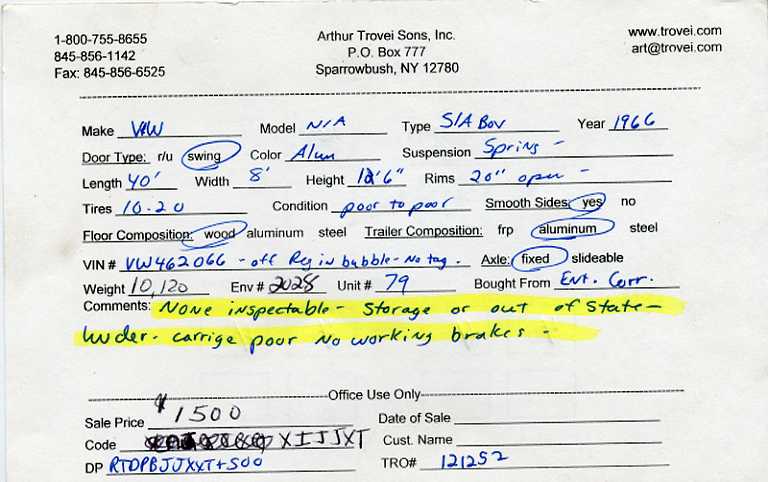 1-800-755-8655 Arthur Trovei Sons, Inc. www.trovei.com
845-856-1142 P.O. Box 777 art@trovei.com
Fax: 845-856-6525 Sparrowbush, NY 12780
Make V&W Model N/A Type S/A Box Year 1966
Door Type: r/u swing Color Alum Suspension Spring -
Length 40' Width 8' Height 12'6" Rims 20" open -
Tires 10.20 Condition poor to poor Smooth Sides: yes no
Floor Composition: wood aluminum steel Trailer Composition: frp aluminum steel
VIN # VW462066 - off Reg in bubble - No tag. Axle: fixed slideable
Weight 10,120 Env # 2028 Unit # 79 Bought From Ent. Corr.
Comments: None inspectable - Storage or out of State -
under - carrige poor No working brakes -
Office Use Only
Sale Price $1500 Date of Sale
Code XIJJXT Cust. Name
DP RTDPBJJXXT+500 TRO# 121252